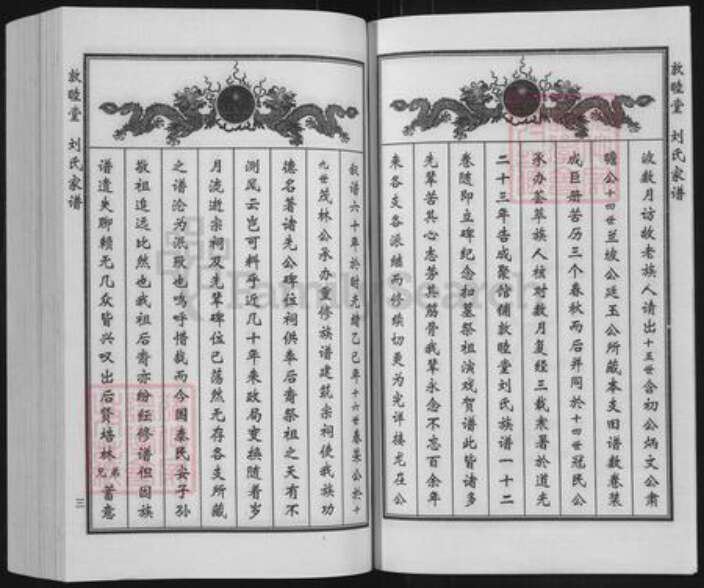 敦睦堂 刘氏家谱
波数月访故老族人请出十五世含初公炳文公肃
瞻公十四世兰坡公廷玉公所藏本支旧谱数卷装
成巨册苦历三个春秋而后并同於十四世冠民公
承办荟萃族人核对数月复经三载隶署於道光
二十三年告成聚馆铺敦睦堂刘氏族谱一十二
卷随即立碑纪念扣墓祭祖演戏贺谱此皆诸多
先辈苦其心志劳其筋骨我辈永念不忘百余年
来各支各派继而修续切更为完详接尤在公
敦睦堂 刘氏家谱
叙谱六十年於时光绪乙巳年十六世春某公於十
九世茂林公承办重修族谱建筑宗祠使我族功
德名著诸先公碑位祠供奉后裔祭祖之天有不
测风云岂可料乎近几十年来政局变换随着岁
月流逝宗祠及先辈碑位已荡然无存各支所藏
之谱沦为泯殁也呜呼惜哉而今国泰民安子孙
敬祖追远比然也我祖后裔亦纷纭修谱但因族
谱遗失聊赖无几众皆兴叹出后贤培林兄弟蓄意
三
FamilySearch